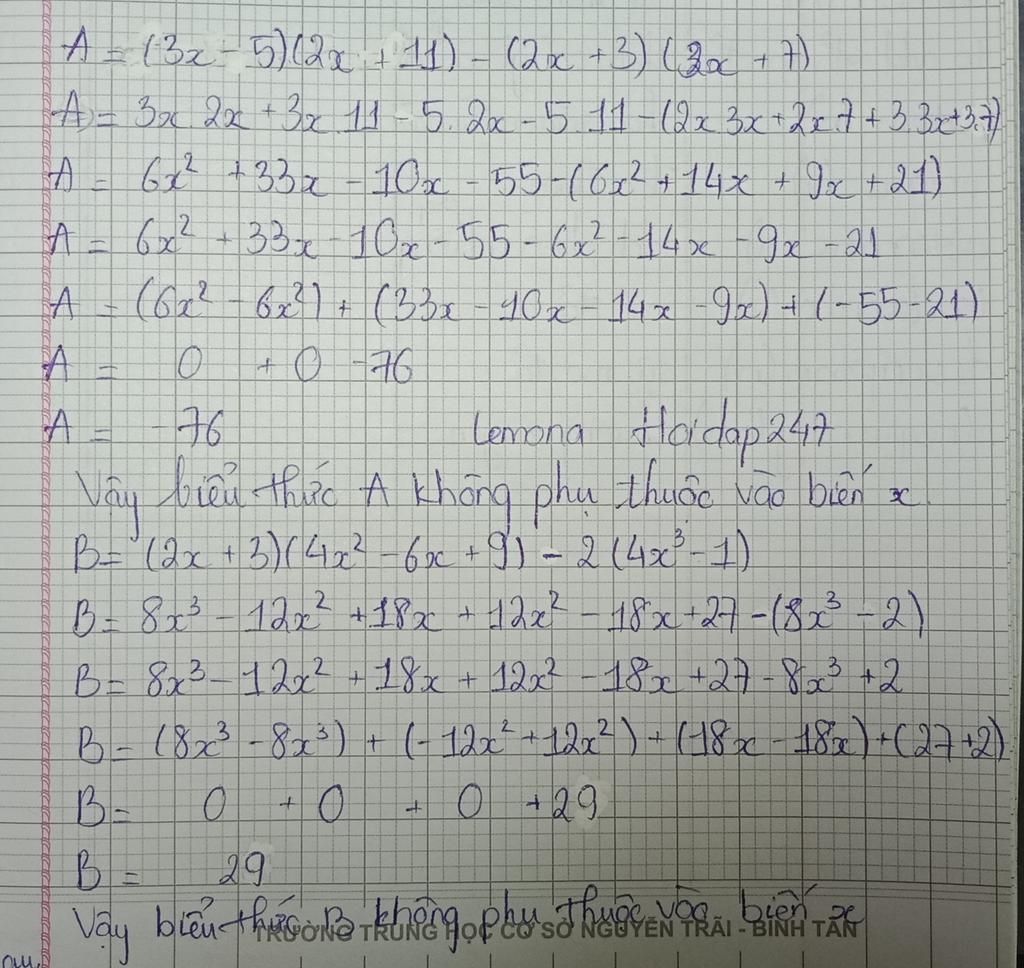 A = (3x - 5)(2x + 11) - (2x + 3)(3x + 7)
A = 3x.2x + 3x.11 - 5.2x - 5.11 - (2x.3x + 2x.7 + 3.3x + 3.7)
A = 6x² + 33x - 10x - 55 - (6x² + 14x + 9x + 21)
A = 6x² + 33x - 10x - 55 - 6x² - 14x - 9x - 21
A = (6x² - 6x²) + (33x - 10x - 14x - 9x) + (-55 - 21)
A = 0 + 0 - 76
A = -76 Lemona Hoidap247
Vậy biểu thức A không phụ thuộc vào biến x
B = (2x + 3)(4x² - 6x + 9) - 2(4x³ - 1)
B = 8x³ - 12x² + 18x + 12x² - 18x + 27 - (8x³ - 2)
B = 8x³ - 12x² + 18x + 12x² - 18x + 27 - 8x³ + 2
B = (8x³ - 8x³) + (-12x² + 12x²) + (18x - 18x) + (27 + 2)
B = 0 + 0 + 0 + 29
B = 29
Vậy biểu thức B không phụ thuộc vào biến x
TRƯỜNG TRUNG HỌC CƠ SỞ NGUYỄN TRÃI - BÌNH TÂN